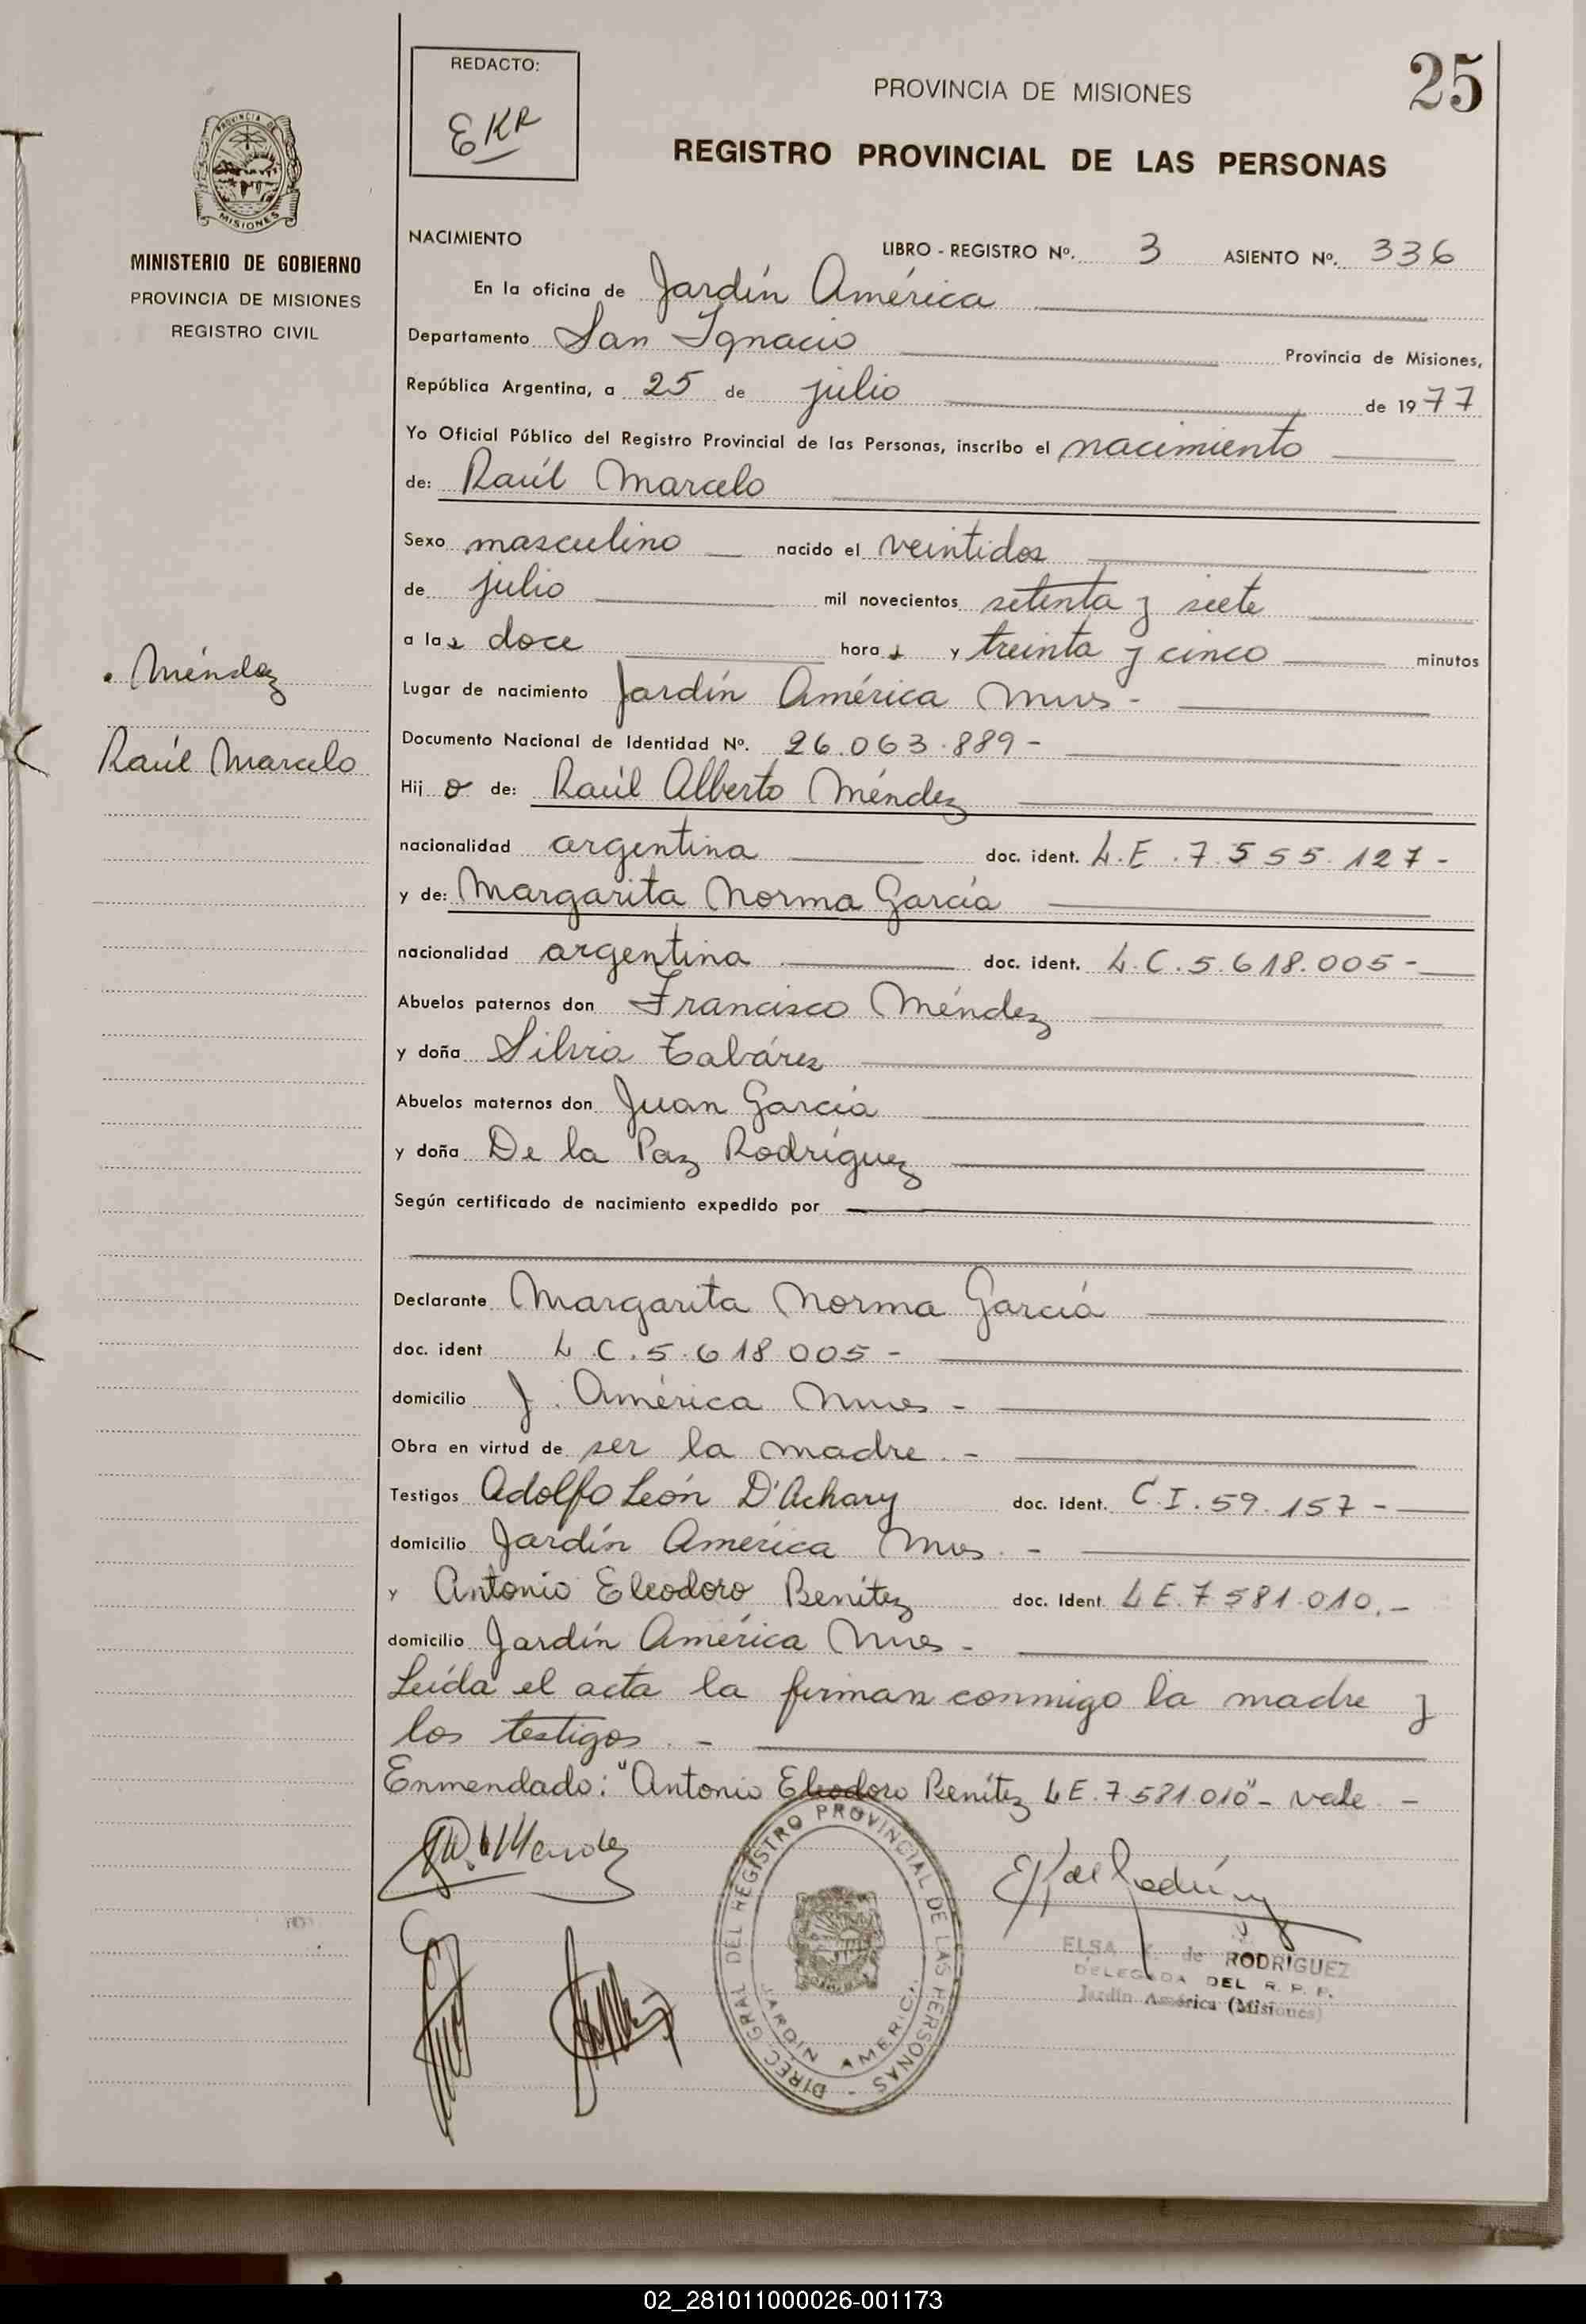 REDACTO:
EKR
PROVINCIA DE MISIONES
25
REGISTRO PROVINCIAL DE LAS PERSONAS
PROVINCIA DE
MISIONES
MINISTERIO DE GOBIERNO
PROVINCIA DE MISIONES
REGISTRO CIVIL
NACIMIENTO
LIBRO - REGISTRO Nº. 3 ASIENTO Nº. 336
En la oficina de Jardín América
Departamento San Ignacio Provincia de Misiones,
República Argentina, a 25 de julio de 1977
Yo Oficial Público del Registro Provincial de las Personas, inscribo el nacimiento
de: Raúl Marcelo
Sexo masculino nacido el veintidos
de julio mil novecientos setenta y siete
a las doce horas y treinta y cinco minutos
Méndez
Raúl Marcelo
Lugar de nacimiento Jardín América Mnes -
Documento Nacional de Identidad Nº. 26.063.889 -
Hijo de: Raúl Alberto Méndez
nacionalidad argentina doc. ident. L.E. 7.555.127 -
y de: Margarita Norma García
nacionalidad argentina doc. ident. L.C. 5.618.005 -
Abuelos paternos don Francisco Méndez
y doña Silvia Tabárez
Abuelos maternos don Juan García
y doña De la Paz Rodríguez
Según certificado de nacimiento expedido por
Declarante Margarita Norma García
doc. ident L C. 5.618 005 -
domicilio J. América Mnes -
Obra en virtud de ser la madre. -
Testigos Adolfo León D'Achary doc. ident. C.I. 59.157 -
domicilio Jardín América Mnes. -
y Antonio Eleodoro Benítez doc. Ident. L E. 7 581.010. -
domicilio Jardín América Mnes -
Leída el acta la firman conmigo la madre y
los testigos. -
Enmendado: "Antonio Eleodoro Benítez L E. 7.581.010" - vale -
DIREC. GRAL DEL REGISTRO PROVINCIAL DE LAS PERSONAS
JARDIN AMERICA
ELSA K. de RODRIGUEZ
DELEGADA DEL R. P. P.
Jardín América (Misiones)
02_281011000026-001173